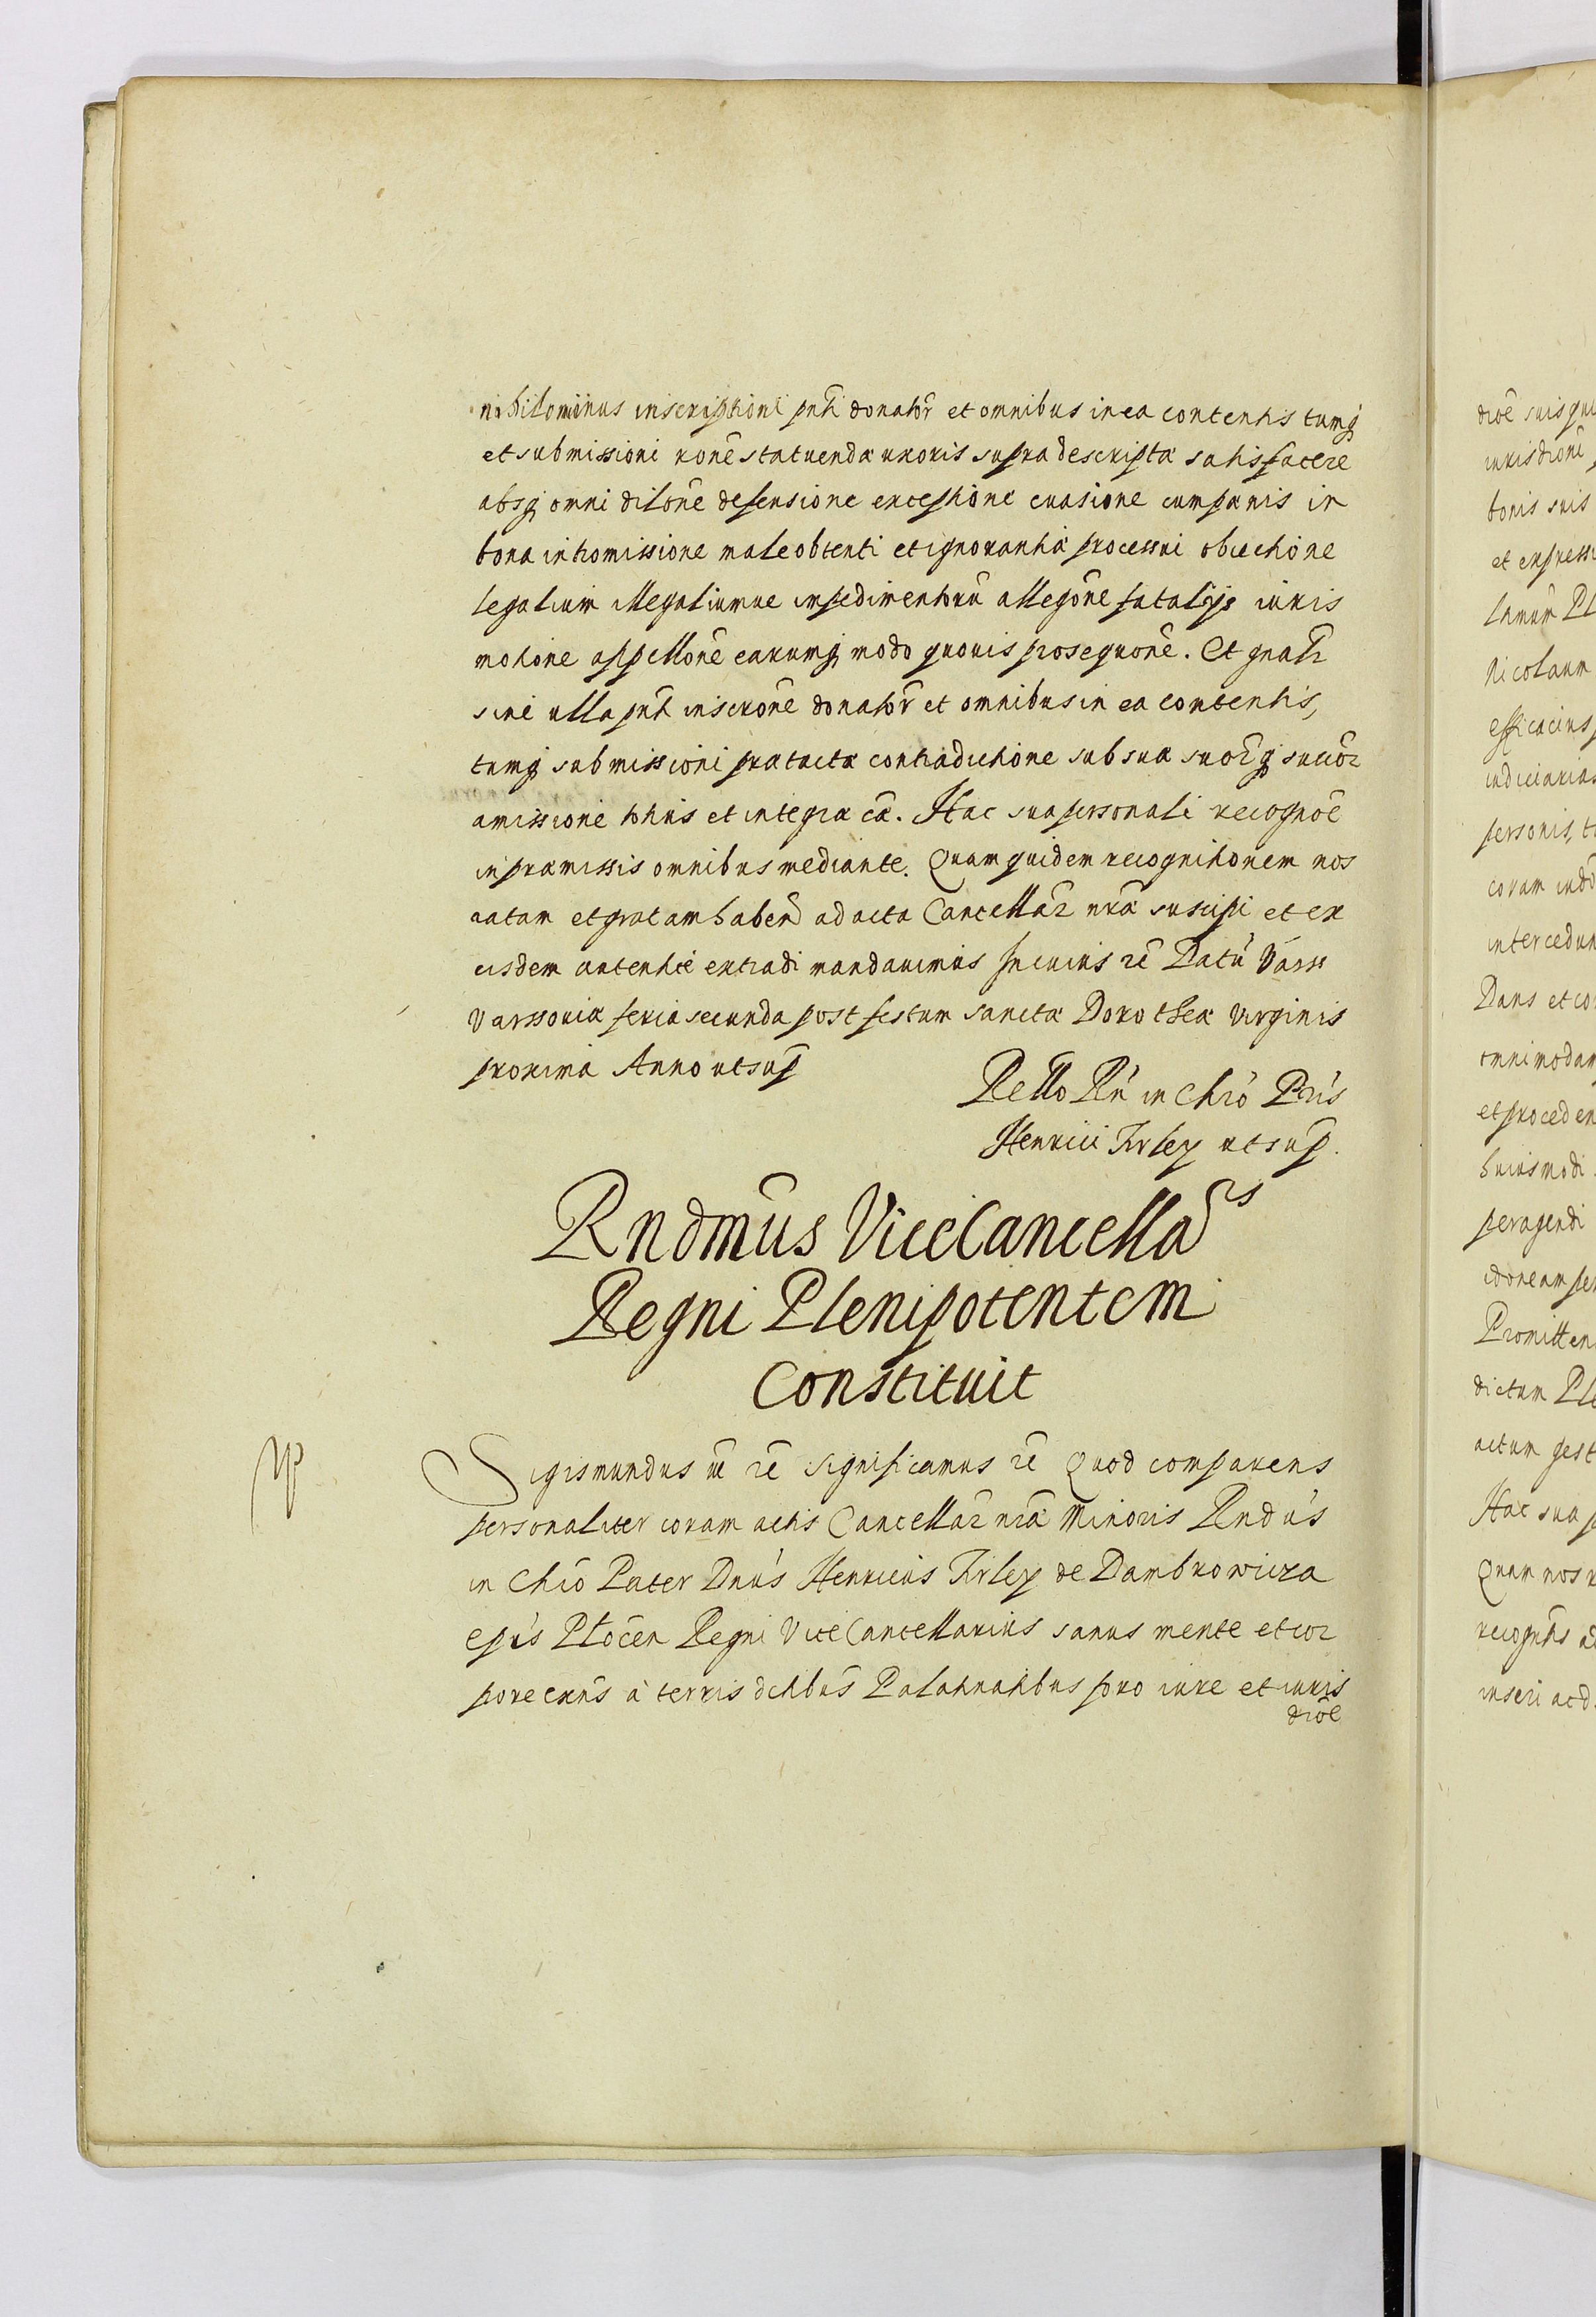 nihilominus inscriptioni pnti donator et omnibus in ea contentis tumq
et submissioni rone statuendæ uxoris supra descriptæ satisfacere
absq omni dilone defensione exceptione euasione cum panis in
bona intromissione male obtenti et ignorantiæ processui obiectione
legalium illegaliumue impedimentorū allegone fatalijs iuris
motione appellone earumq modo quouis prosequone. Et gnalr
sine ulla pnti inscrone donator et omnibus in ea contentis,
tumq submissioni prætactæ contradictione sub sua suorq succor
amissione totius et integræ cæ. Hac sua personali recognoe
in præmissis omnibus mediante. Quam quidem recognitionem nos
ratam et gratam haben ad acta Cancellar nræ suscipi et ex
eisdem autentice extradi mandauimus In cuius rē Datū Varss
Varssouiæ feria secunda post festum sanctæ Dorotheæ Virginis
proxima Anno ut sup
Rello Rn in Chrō Pris
Henrici Firley ut sup.
Rndmus ViceCancellars
Regni Plenipotentem
Constituit
Sigismundus III rē significamus rē Quod comparens
personaliter coram actis Cancellar nræ Minoris Rndus
in Chrō Pater Dnūs Henricus Firley de Dambrowicza
epūs Plocen Regni ViceCancellarius sanus mente et cor
pore exns à terris dctibus Palatinatibus pro iure et iuris
dicoe
dioe suis
iurisdione
bonis suis
et express
Nicolaum
efficacius
iudiciarias
personis,
coram
Dans et
omnimodam
et
huiusmodi
peragendi
idoneam
dictum
actum gest
Hac sua
Quam nos